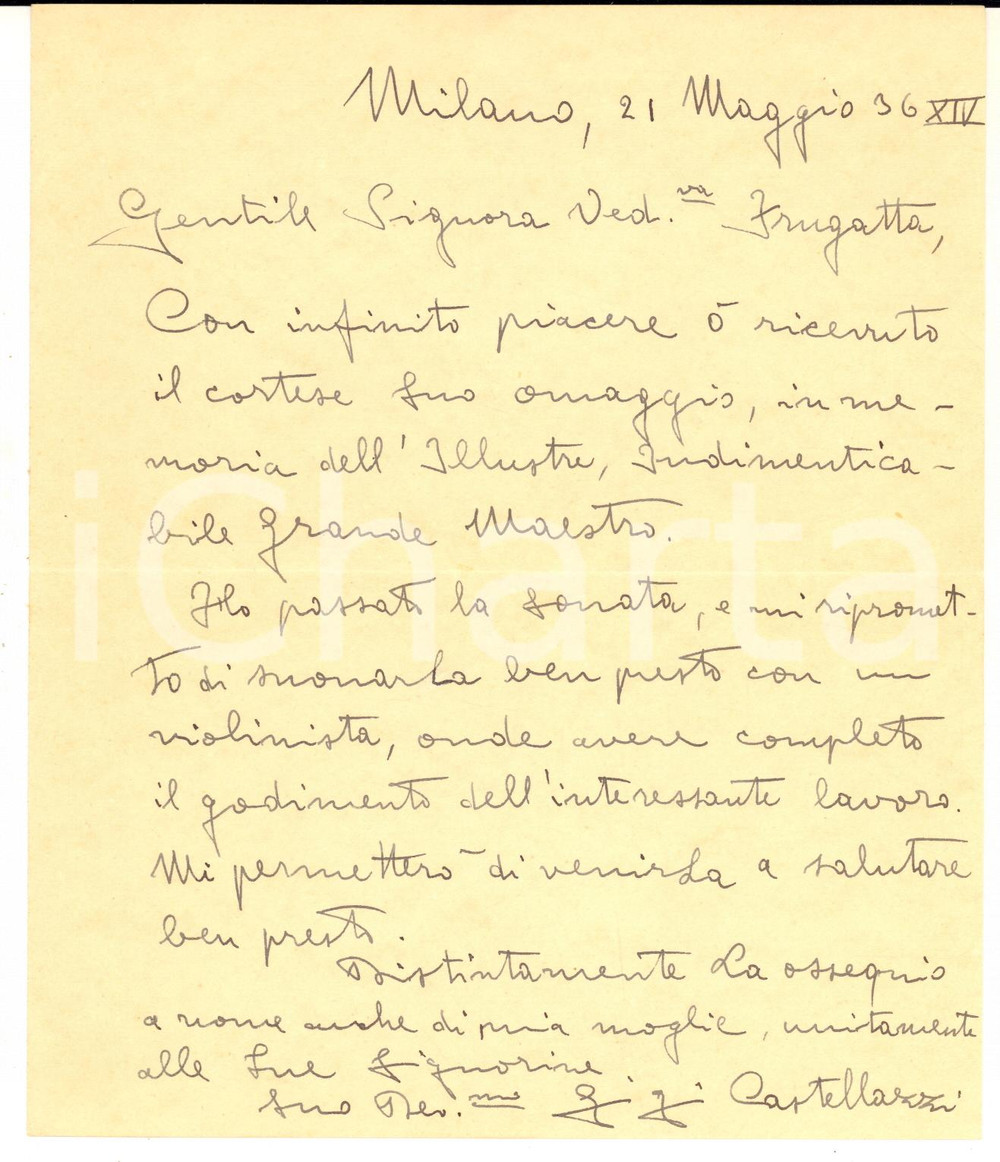 Milano, 21 Maggio 36 XIV
Gentile Signora Ved.va Frugatta,
Con infinito piacere ò ricevuto
il cortese Suo omaggio, in me-
moria dell'Illustre, Indimentica-
bile Grande Maestro.
Ho passato la Sonata, e mi ripromet-
to di suonarLa ben presto con un
violinista, onde avere completo
il godimento dell'interessante lavoro.
Mi permetterò di venirLa a salutare
ben presto.
Distintamente La ossequio
a nome anche di mia moglie, unitamente
alle Sue Signorine
Suo Dev.mo Gigi Castellazzi
iCharta